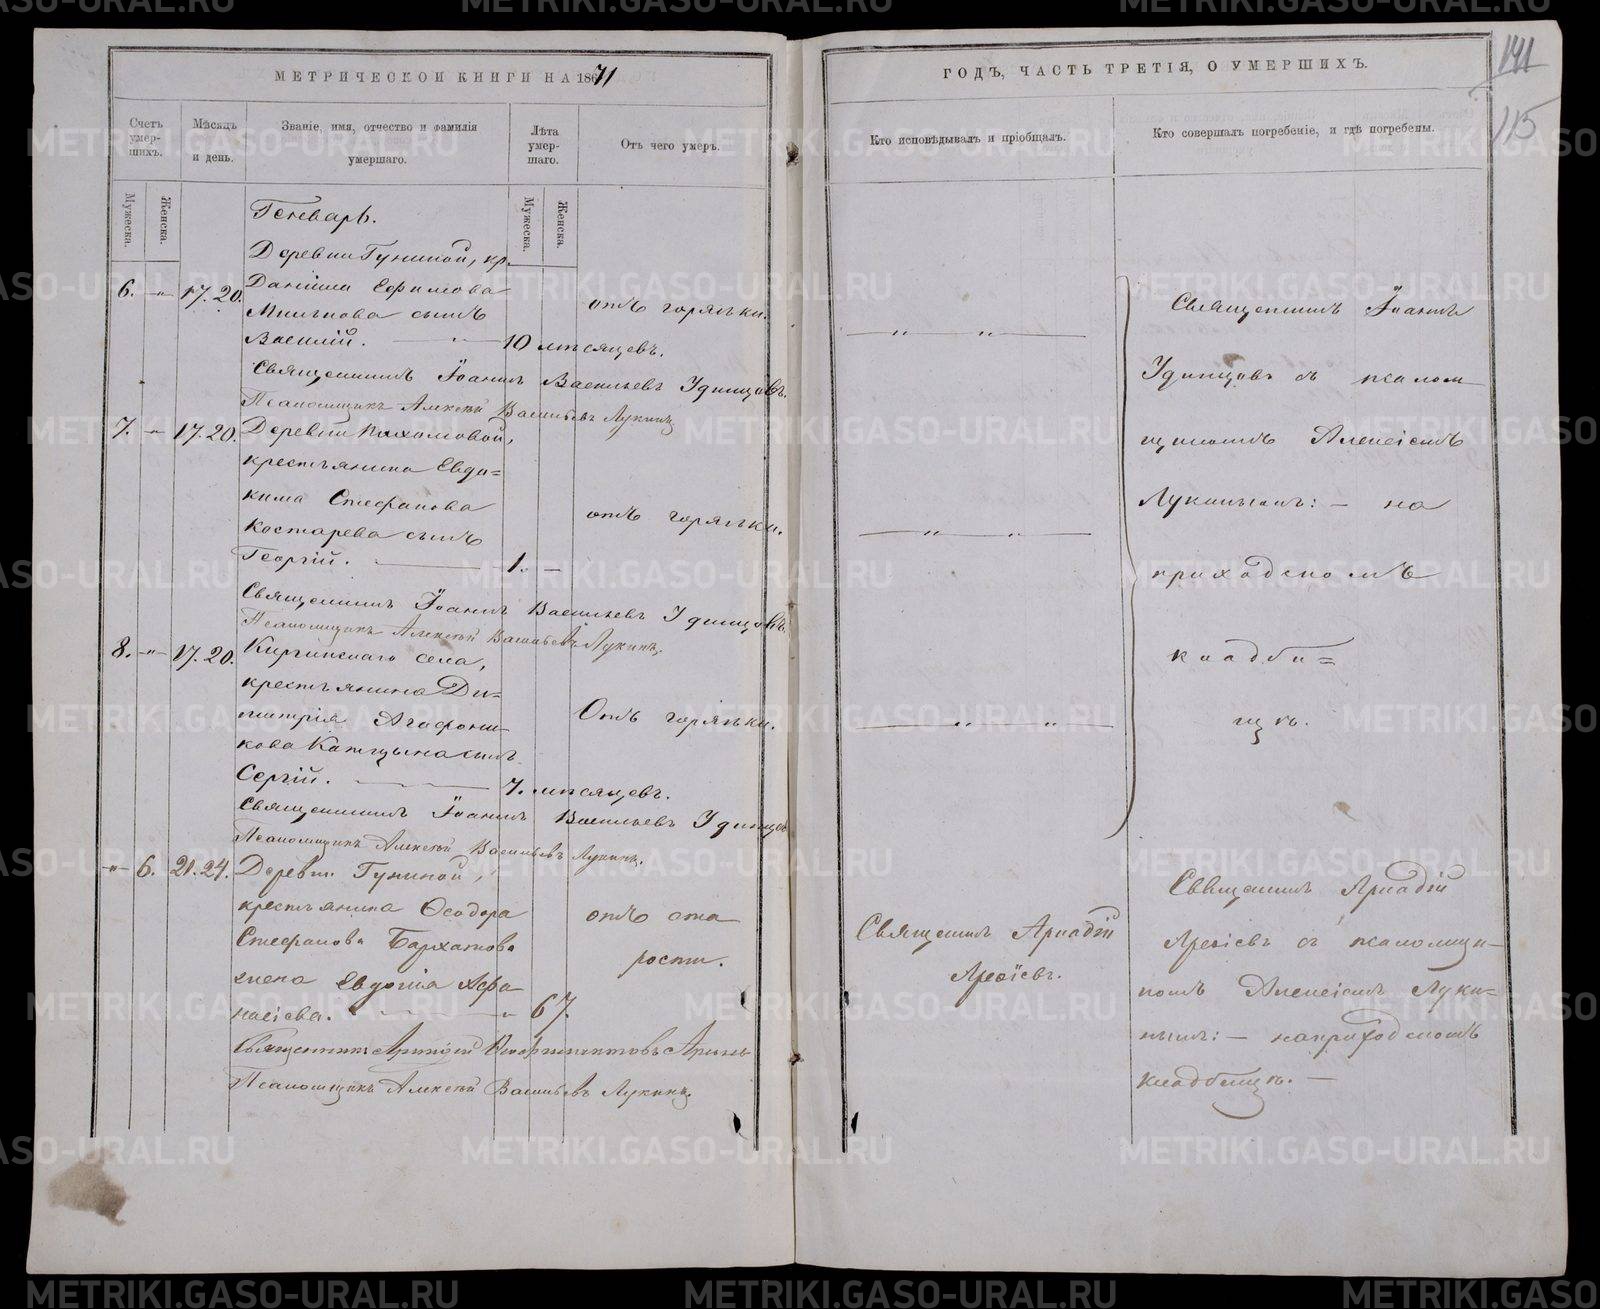 МЕТРИЧЕСКОЙ КНИГИ НА 1871
Счетъ умер-шихъ.
Мѣсяцъ и день.
Званіе, имя, отчество и фамилія умершаго.
Лѣта умер-шаго.
Отъ чего умеръ.
Мужеска.
Женска.
Мужеска.
Женска.
Генварь.
Деревни Гуниной, кр.
6. -"- 17. 20. Даніила Ефимова
отъ горячки.
сынъ
Василій. — " — 10 мѣсяцевъ.
Священникъ Іоаннъ Васильевъ Удинцовъ.
Псаломщикъ Алексѣй Васильевъ Лукинъ
7. -"- 17. 20. Деревни Пахомовой,
крестьянина Евдо=
кима Стефанова
отъ горячки.
Костарева сынъ
Георгій. — 1. —
Священникъ Іоаннъ Васильевъ Удинцовъ.
Псаломщикъ Алексѣй Васильевъ Лукинъ.
8. -"- 17. 20. Киргинскаго села,
крестьянина Ди=
митрія Агафони-
Отъ горячки.
кова сынъ
Сергій. — 7. мѣсяцевъ.
Священникъ Іоаннъ Васильевъ Удинцовъ
Псаломщикъ Алексѣй Васильевъ Лукинъ.
-"- 6. 21. 24. Деревни Гуниной,
крестьянина Ѳеодора
отъ ста
Стефанова Бархатова
рости.
жена Евдокія Аѳа-
насіева. — " 67.
Священникъ Аркадій
Псаломщикъ Алексѣй Васильевъ Лукинъ.
ГОДЪ, ЧАСТЬ ТРЕТІЯ, О УМЕРШИХЪ.
141
115
Кто исповѣдывалъ и пріобщалъ.
Кто совершалъ погребеніе, и гдѣ погребены.
Священникъ Іоаннъ
Удинцовъ съ псалом
щикомъ Алексіемъ
Лукинымъ: — на
приходскомъ
кладби=
щѣ.
Священникъ Аркадій
Священникъ Аркадій
съ псаломщи-
комъ Алексіемъ Луки-
нымъ: — на приходскомъ
кладбищѣ. —
METRIKI.GASO-URAL.RU